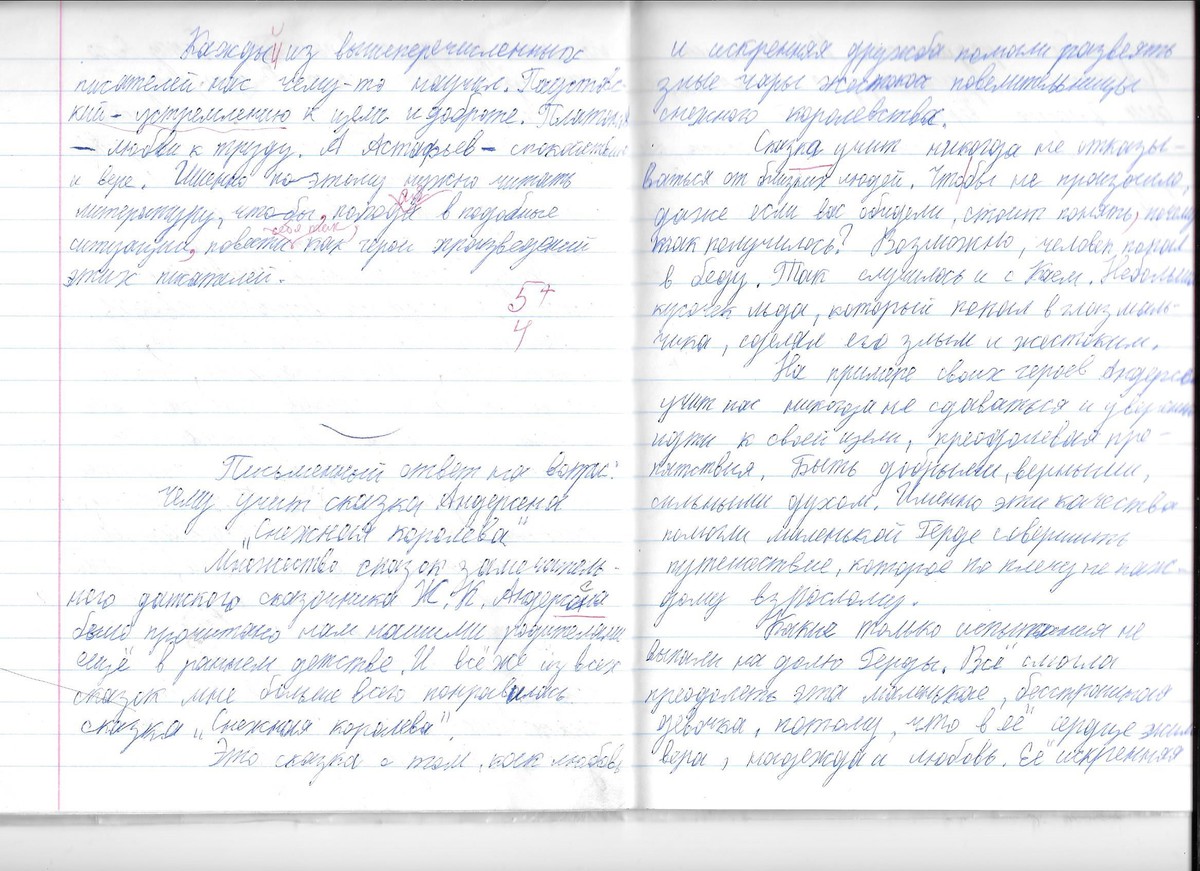 Каждый из вышеперечисленных
писателей нас чему-то научил. Паустовс-
кий - устремлению к цели и доброте. Платонов
- любви к труду. А Астафьев - спокойствию
и вере. Именно по-этому нужно читать
литературу, что-бы, попадая в подобные
ситуации, повести себя так, как герои произведений
этих писателей.
5+
4
Письменный ответ на вопрос:
Чему учит сказка Андерсена
„Снежная королева"
Множество сказок замечатель-
ного датского сказочника Ж. К. Андерсена
было прочитано нам нашими родителями
ещё в раннем детстве. И всё же из всех
сказок мне больше всего понравилась
сказка „Снежная королева".
Это сказка о том, как любовь
и искренняя дружба помогли развеять
злые чары жестокой повелительницы
снежного королевства.
Сказка учит никогда не отказы-
ваться от близких людей. Что бы не произошло,
даже если вас обидели, стоит понять, почему
так получилось? Возможно, человек попал
в беду. Так случилось и с Каем. Небольшой
кусочек льда, который попал в глаз маль-
чика, сделал его злым и жестоким.
На примере своих героев Андерсен
учит нас никогда не сдаваться и уверенно
идти к своей цели, преодолевая пре-
пятствия. Быть добрыми, верными,
сильными духом. Именно эти качества
помогли маленькой Герде совершить
путешествие, которое по плечу не каж-
дому взрослому.
Какие только испытания не
выпали на долю Герды. Всё смогла
преодолеть эта маленькая, бесстрашная
девочка, потому, что в её сердце жили
вера, надежда и любовь. Её искренняя